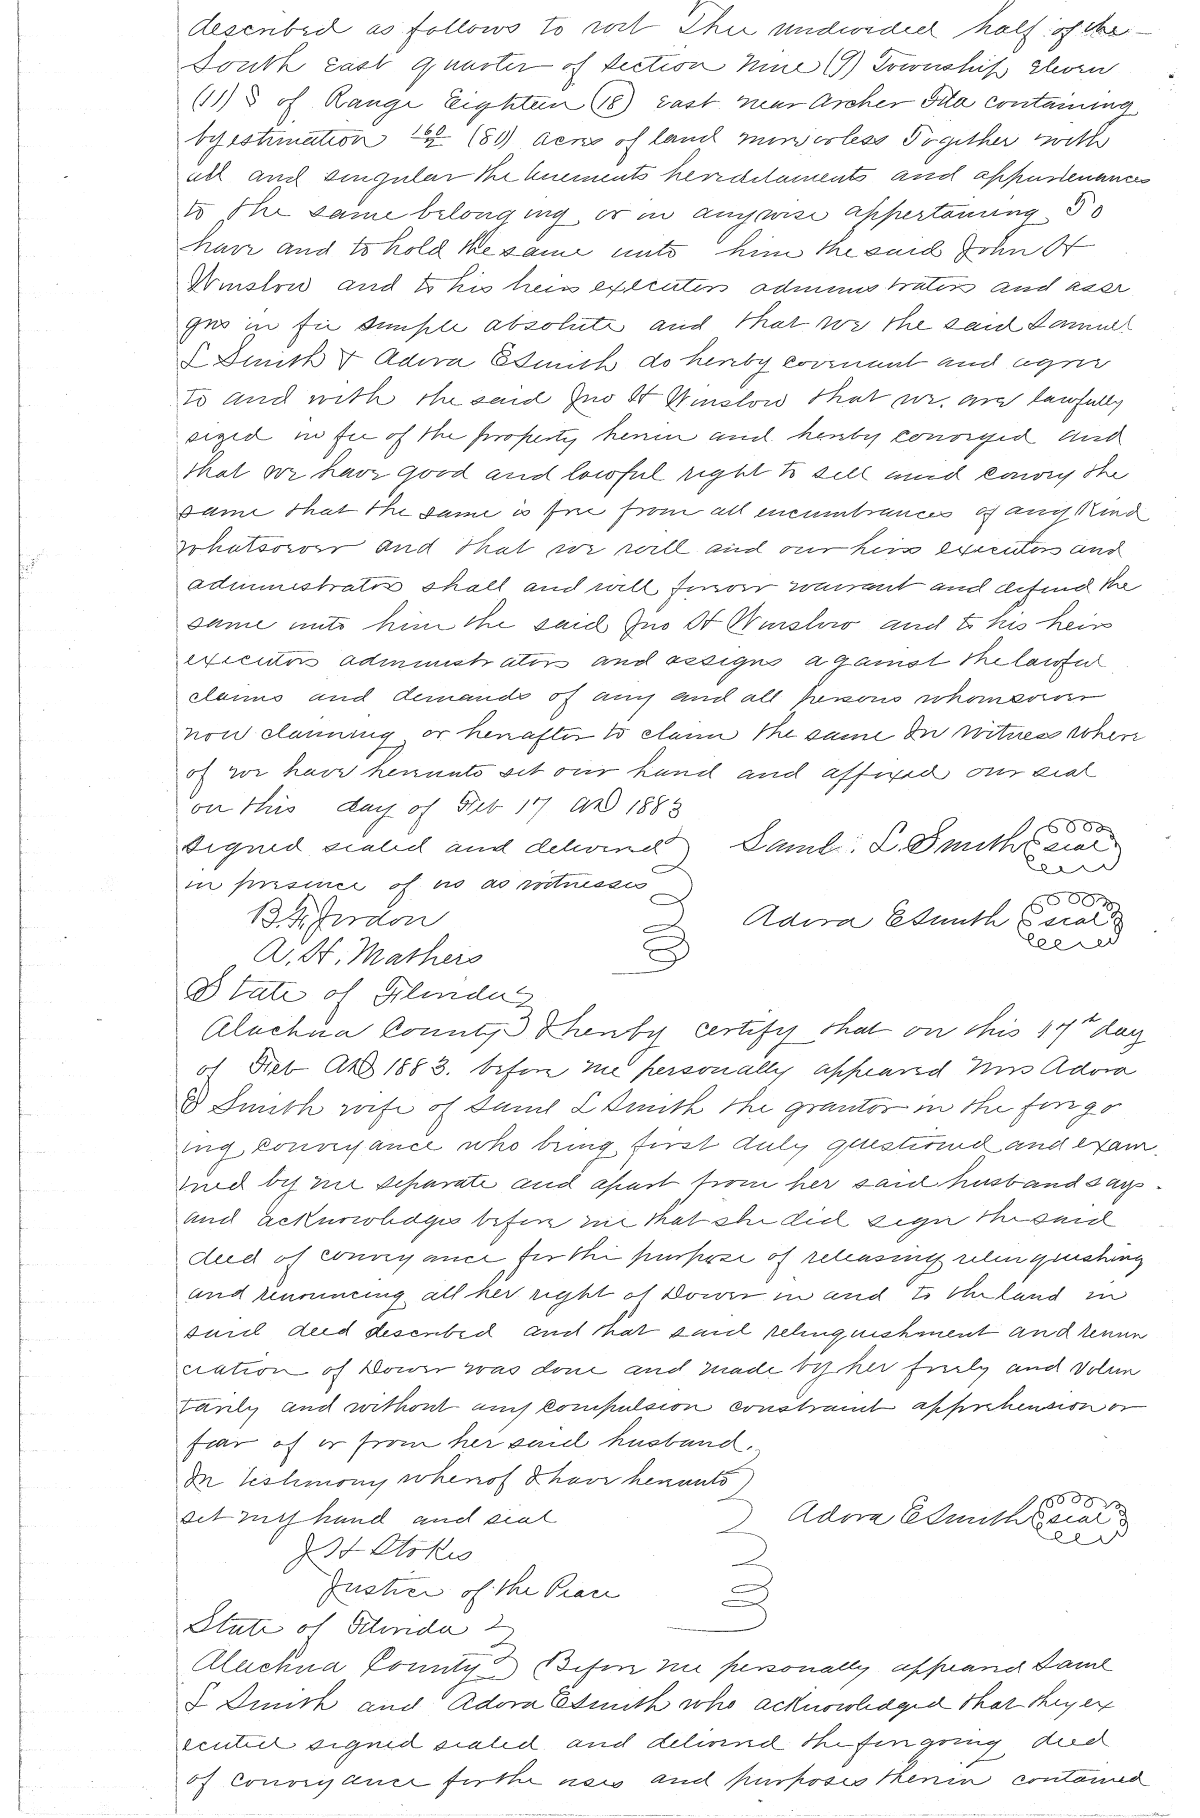 described as follows to wit The undivided half of the
South east quarter of Section Nine (9) Township eleven
(11) S of Range Eighteen (18) east near Archer Fla containing
by estimation 160/2 (80) acres of land more or less Together with
all and singular the tenements hereditaments and appurtenances
to the same belonging or in anywise appertaining To
have and to hold the same unto him the said John H
Winslow and to his heirs executors administrators and assi
gns in fee simple absolute and that we the said Samuel
L Smith & Adora E Smith do hereby covenant and agree
to and with the said Jno H Winslow that we are lawfully
siezed in fee of the property herein and hereby conveyed and
that we have good and lawful right to sell and convey the
same that the same is free from all encumbrances of any Kind
whatsoever and that we will and our heirs executors and
administrators shall and will forever warrant and defend the
same unto him the said Jno H Winslow and to his heirs
executors administrators and assigns against the lawful
claims and demands of any and all persons whomsoever
now claiming or hereafter to claim the same In witness where
of we have hereunto set our hand and affixed our seal
on this day of Feb 17 AD 1883
Signed sealed and delivered ) Saml. L. Smith seal
in presence of us as witnesses
B. F. Jordon Adora E Smith seal
A. H. Mathers
State of Florida
Alachua County I hereby certify that on this 17th day
of Feb AD 1883. before me personally appeared Mrs Adora
E Smith wife of Saml L Smith the grantor in the forego
ing conveyance who being first duly questioned and exam
ined by me separate and apart from her said husband says
and acknowledges before me that she did sign the said
deed of conveyance for the purpose of releasing relinquishing
and renouncing all her right of Dower in and to the land in
said deed described and that said relinquishment and renun
ciation of Dower was done and made by her freely and volun
tarily and without any compulsion constraint apprehension or
fear of or from her said husband.
In testimony whereof I have hereunto )
set my hand and seal Adora E Smith seal
J H Stokes
Justice of the Peace
State of Florida
Alachua County Before me personally appeared Saml
L Smith and Adora E Smith who acknowledged that they ex
ecuted signed sealed and delivered the foregoing deed
of conveyance for the uses and purposes therein contained